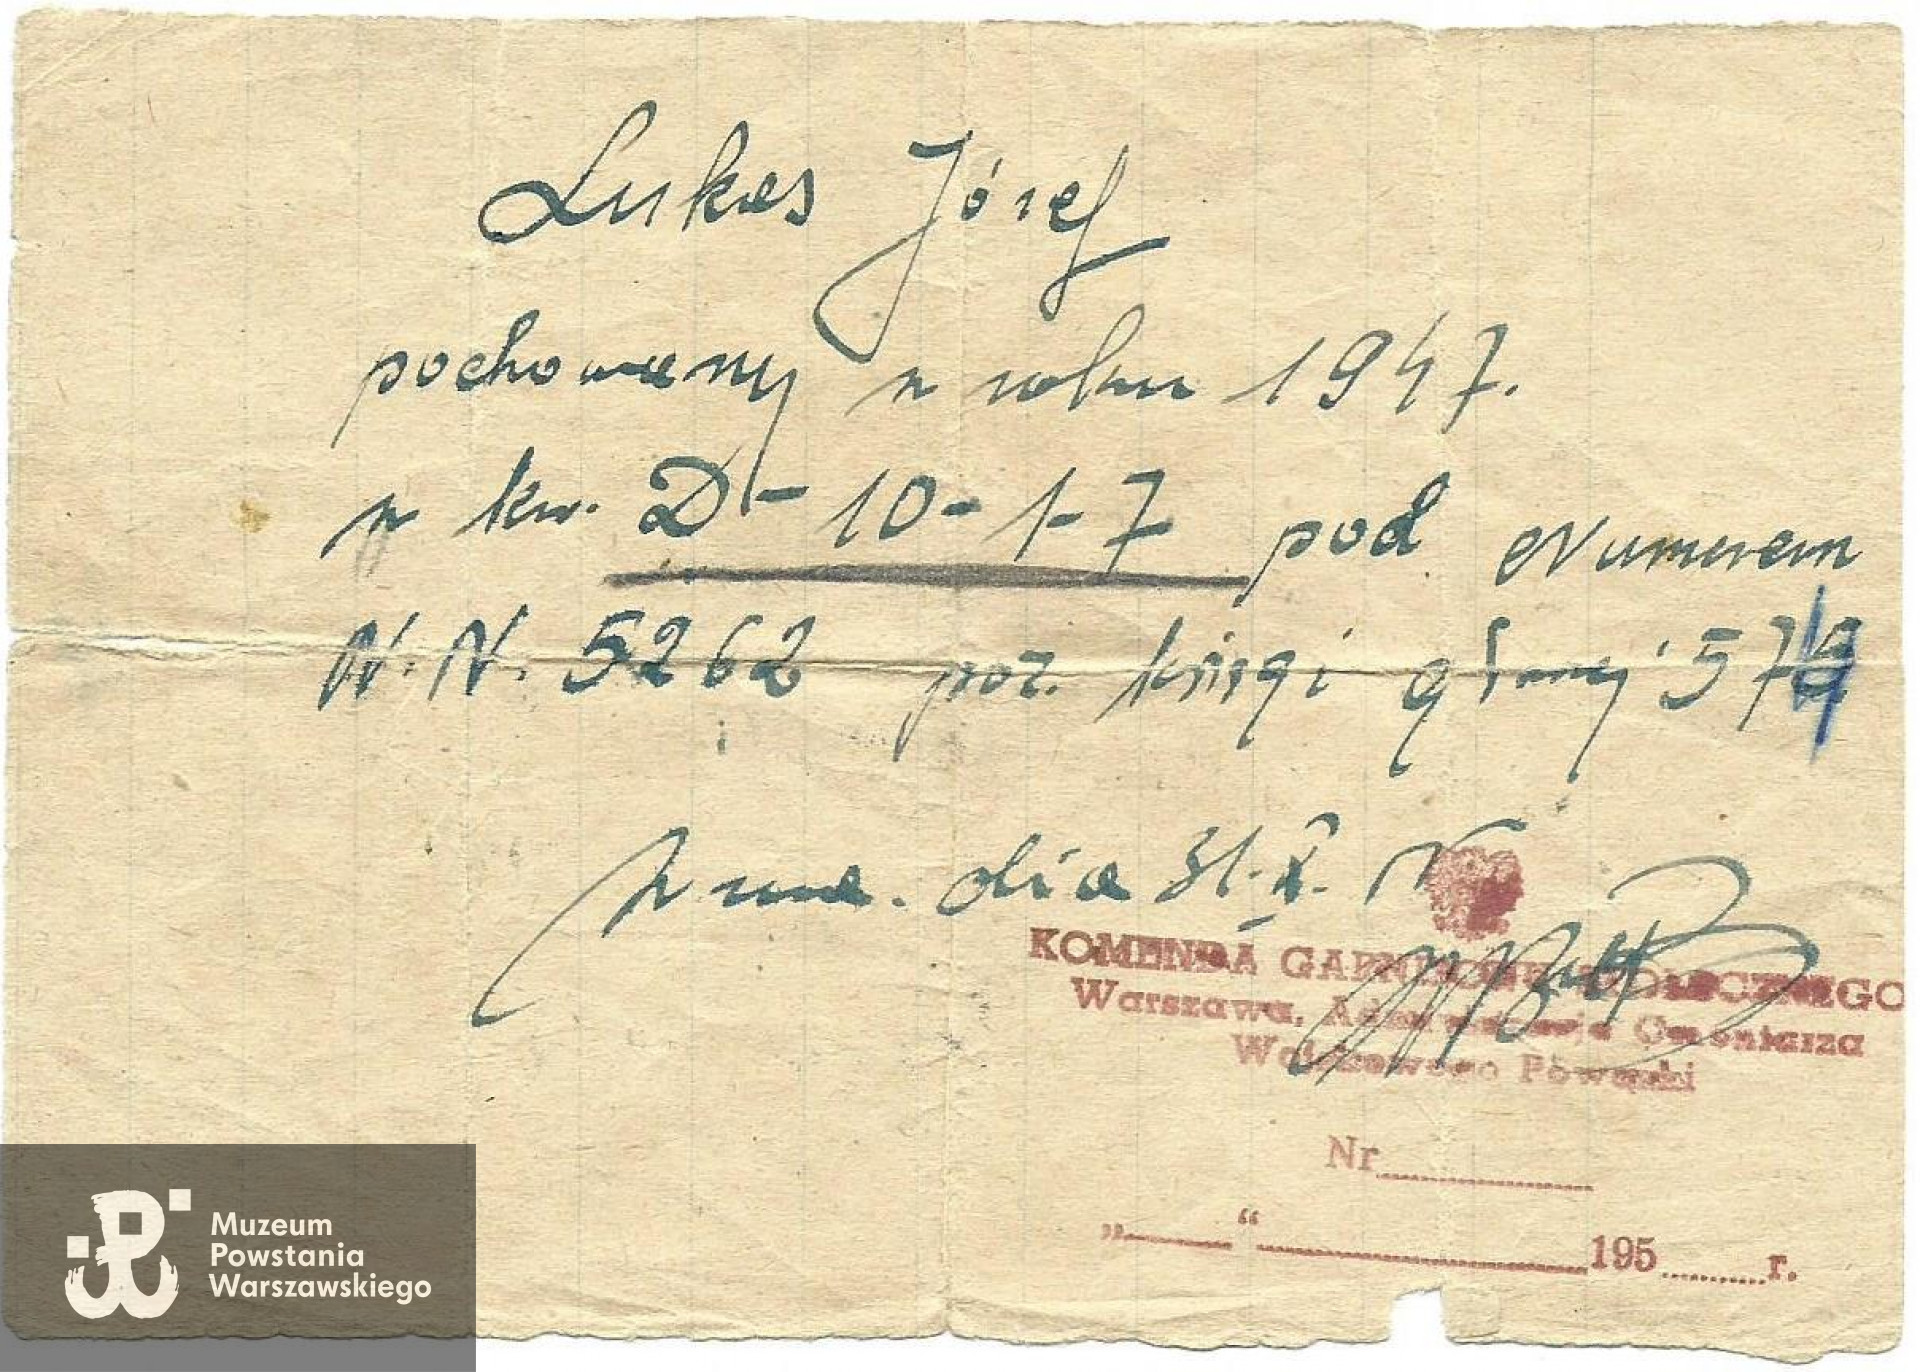 Lukas Józef
pochowany w roku 1947.
w kw. D-10-1-7 pod Numerem
N.N. 5262 poz. księgi głównej 57
dnia 31.X.
KOMENDA GARNIZONU STOŁECZNEGO
Warszawa, Administracja Cmentarza
Wojskowego Powązki
Nr
„ “ 195 r.
Muzeum
Powstania
Warszawskiego